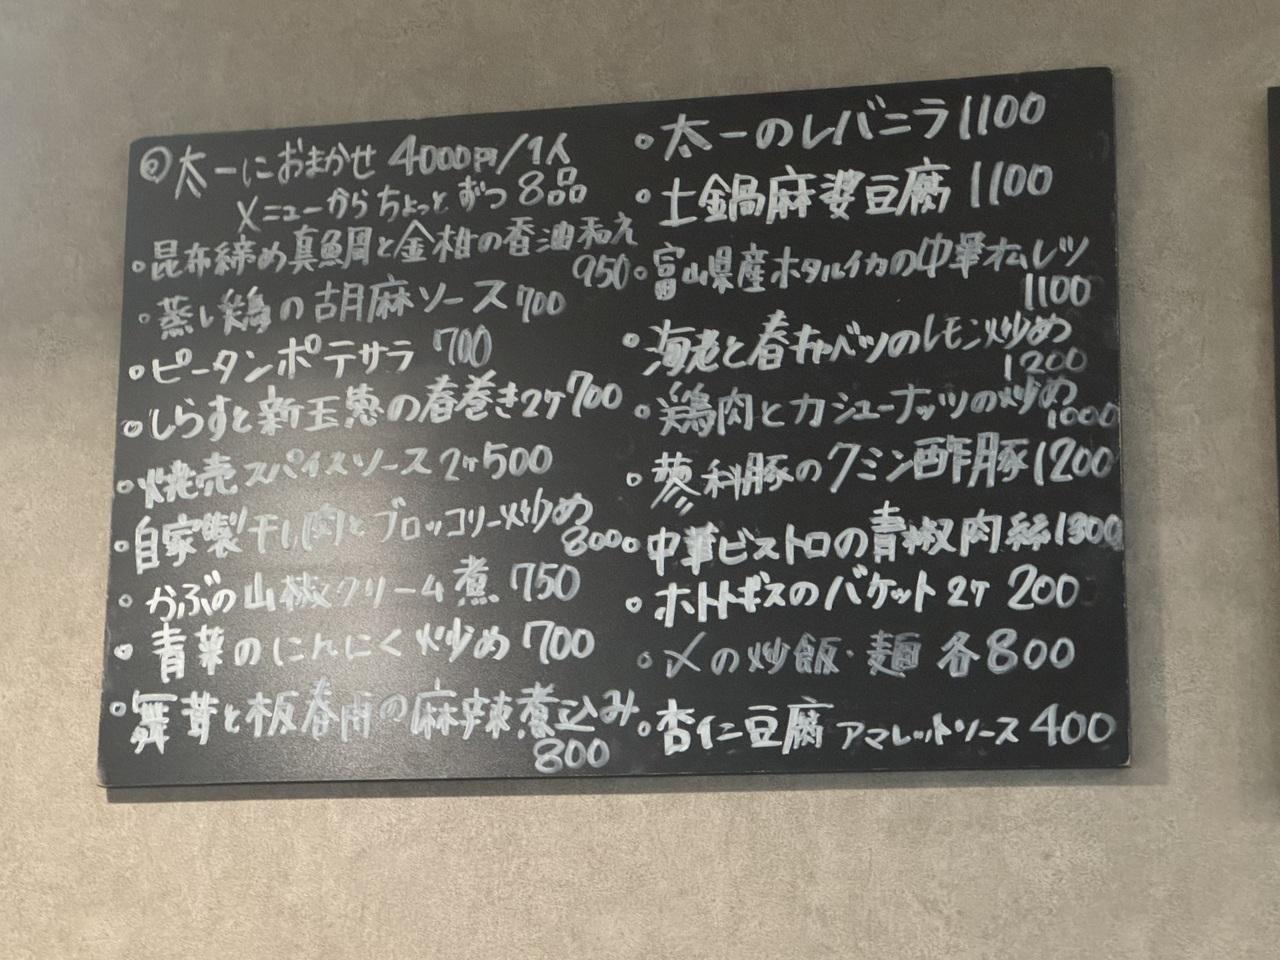 ◎太一におまかせ 4000円/1人
メニューからちょっとずつ8品
・昆布締め真鯛と金柑の香油和え
950
・蒸し鶏の胡麻ソース 700
・ピータンポテサラ 700
・しらすと新玉葱の春巻き2ケ700
・焼売スパイスソース 2ケ500
・自家製干し肉とブロッコリー炒め
800
・かぶの山椒クリーム煮 750
・青菜のにんにく炒め 700
・舞茸と板春雨の麻辣煮込み
800
・太一のレバニラ 1100
・土鍋麻婆豆腐 1100
・富山県産ホタルイカの中華オムレツ
1100
・海老と春キャベツのレモン炒め
1200
・鶏肉とカシューナッツの炒め
1000
・蓼科豚のクミン酢豚1200
・中華ビストロの青椒肉絲1300
・ホトトギスのバケット 2ケ 200
・〆の炒飯・麺 各800
・杏仁豆腐 アマレットソース 400